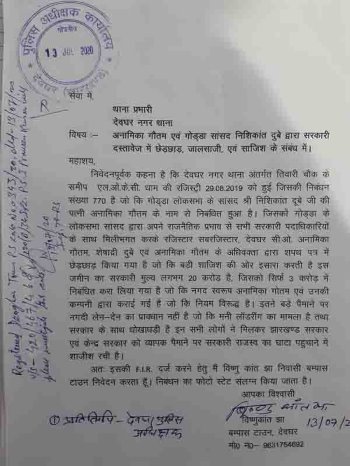 पुलिस अधीक्षक कार्यालय
गोपनीय
13 JUL 2020
देवघर (झारखण्ड)
सेवा में,
थाना प्रभारी
देवघर नगर थाना
विषय :– अनामिका गौतम एवं गोड्डा सांसद निशिकांत दुबे द्वारा सरकारी
दस्तावेज में छेड़छाड़, जालसाजी, एवं साजिश के संबंध में।
महाशय,
निवेदनपूर्वक कहना है कि देवघर नगर थाना अंतर्गत तिवारी चौक के
समीप एल.ओ.के.सी धाम की रजिस्ट्री 29.08.2019 को हुई जिसकी निबंधन
संख्या 770 है जो कि गोड्डा लोकसभा के सांसद श्री निशिकांत दुबे जी की
पत्नी अनामिका गौतम के नाम से निबंधित हुआ है। जिसको गोड्डा के
लोकसभा सांसद द्वारा अपने राजनैतिक प्रभाव से सभी सरकारी पदाधिकारियों
के साथ मिलीभगत करके रजिस्टार सबरजिस्टार, देवघर सी.ओ. अनामिका
गौतम, शेषाद्री दुबे एवं अनामिका गौतम के अधिवक्ता द्वारा शपथ पत्र में
छेड़छाड़ किया गया है जो कि बड़ी शाजिश की ओर इसारा करती है इस
जमीन का सरकारी मूल्य लगभग 20 करोड़ है, जिसको सिर्फ 3 करोड़ में
निबंधित करा लिया गया है जो कि नगद स्वरूप अनामिका गौतम एवं उनकी
कम्पनी द्वारा कराई गई है जो कि नियम विरूद्ध है। इतने बड़े पैमाने पर
नगदी लेन-देन का प्रावधान नहीं है जो कि मनी लॉंडरींग का मामला है तथा
सरकार के साथ धोखाधड़ी है इन सभी लोगों ने मिलकर झारखण्ड सरकार
एवं केन्द्र सरकार को व्यापक पैमाने पर सरकारी राजस्व का घाटा पहुंचाने में
शाजीश रची है।
अतः इसकी F.I.R. दर्ज करने हेतु मैं विष्णु कांत झा निवासी बम्पास
टाउन निवेदन करता हूँ। निबंधन का फोटो स्टेट संलग्न किया जाता है।
आपका विश्वासी
विष्णु कांत झा
13/07/2
विष्णुकांत झा
बम्पास टाउन, देवघर
मो० नं०– 9631754692
① प्रतिलिपि – देवघर पुलिस
अधीक्षक